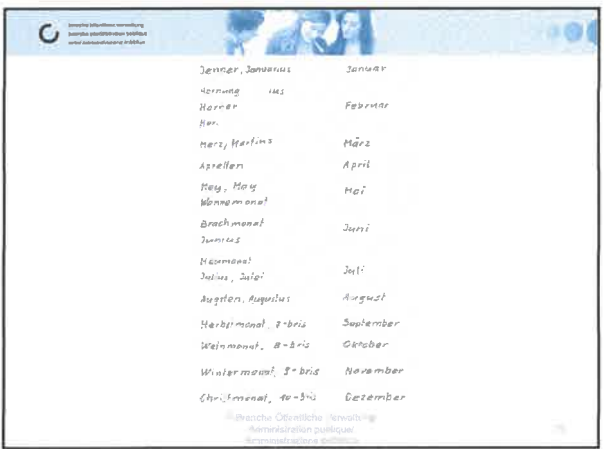 branche öffentliche verwaltung
branche administration publique
ramo amministrazione pubblica
Jenner, Januarius Januar
Hornung
Horner Februar
Hor.
Merz, Martius März
Aprellen April
Mey, May Mai
Wonnemonat
Brachmonat Juni
Junius
Heumonat Juli
Julius, Julei
Augsten, Augustus August
Herbstmonat, 7-bris September
Weinmonat, 8-bris Oktober
Wintermonat, 9-bris November
Christmonat, 10-bris Dezember
Branche Öffentliche Verwaltung
Administration publique
Amministrazione pubblica